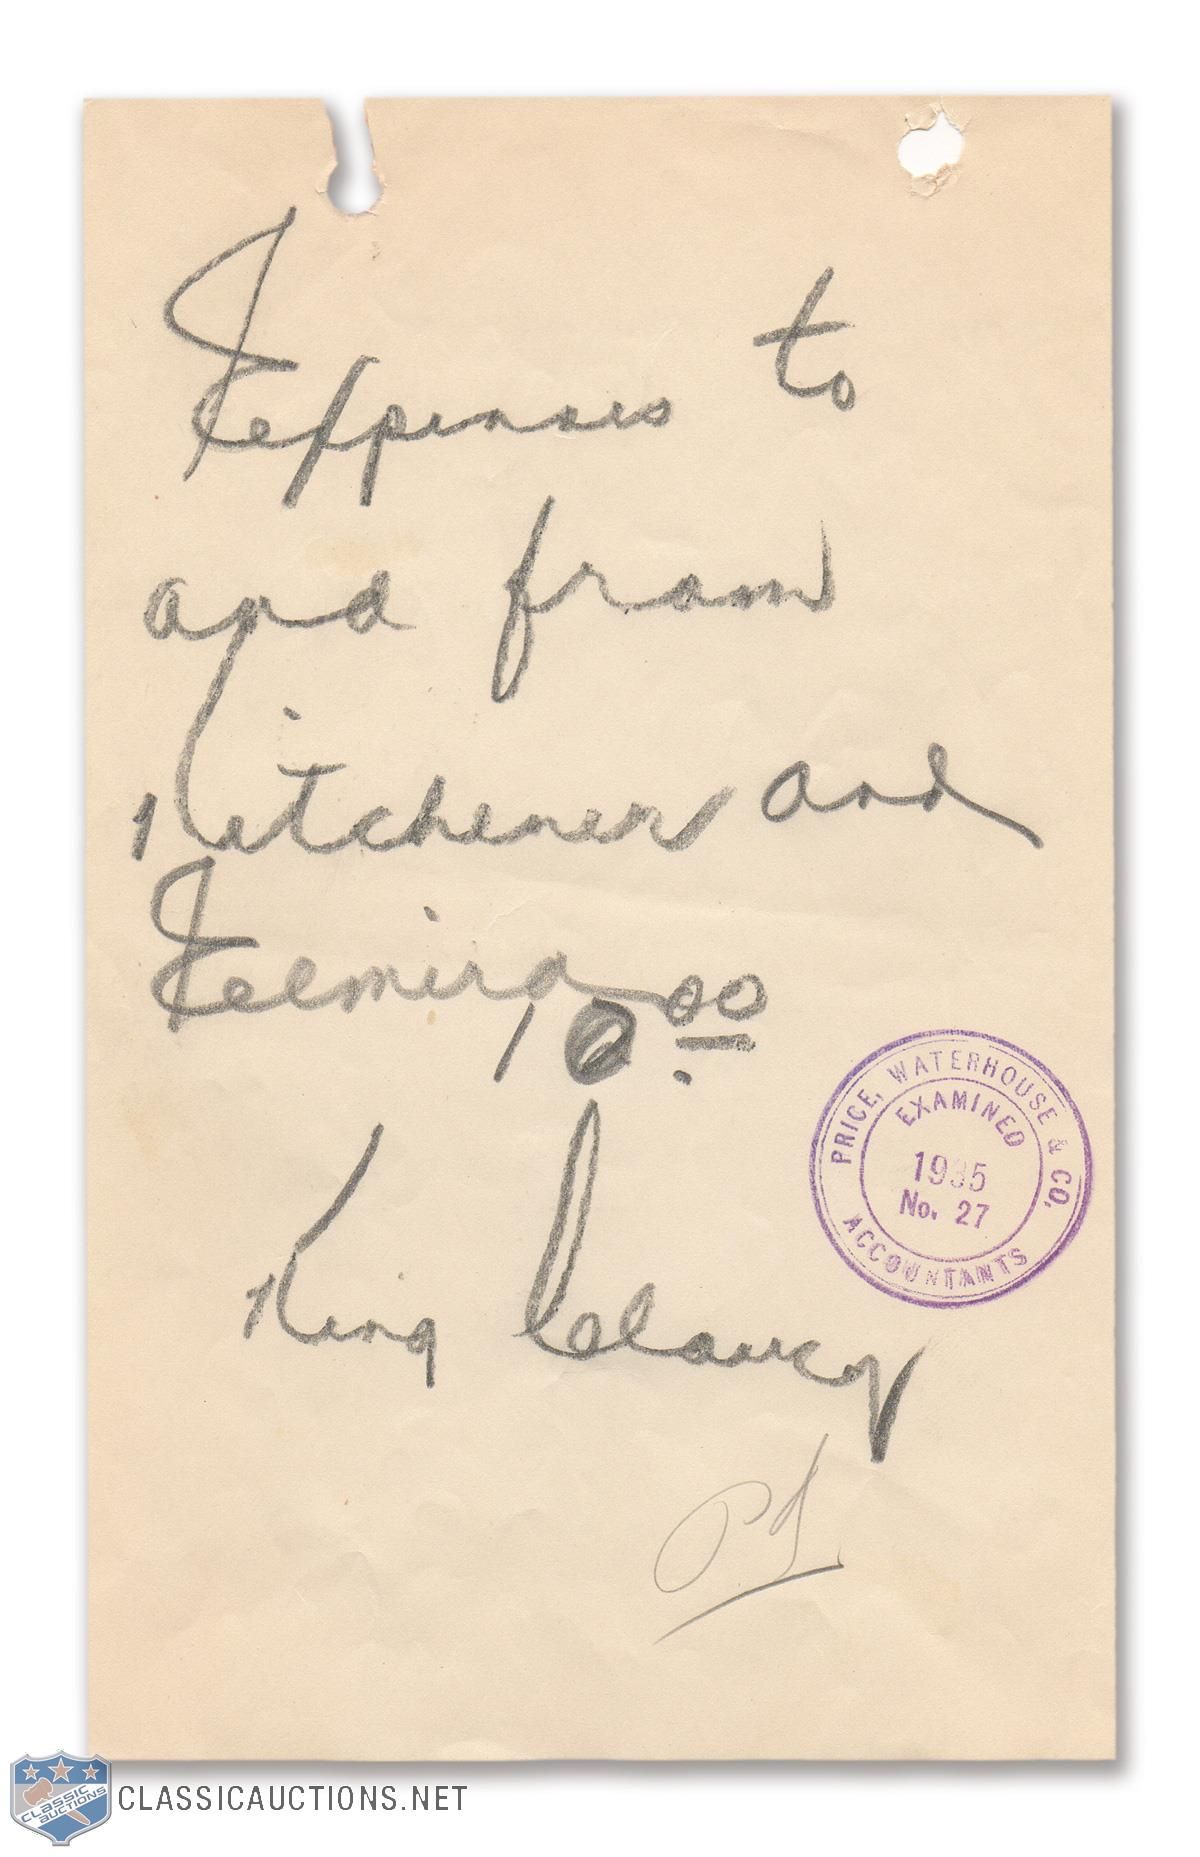 Expenses to
and from
Kitchener and
Elmira
10.00
King Clancy
PRICE, WATERHOUSE & CO.
EXAMINED
1935
No. 27
ACCOUNTANTS
CLASSIC
AUCTIONS
CLASSICAUCTIONS.NET